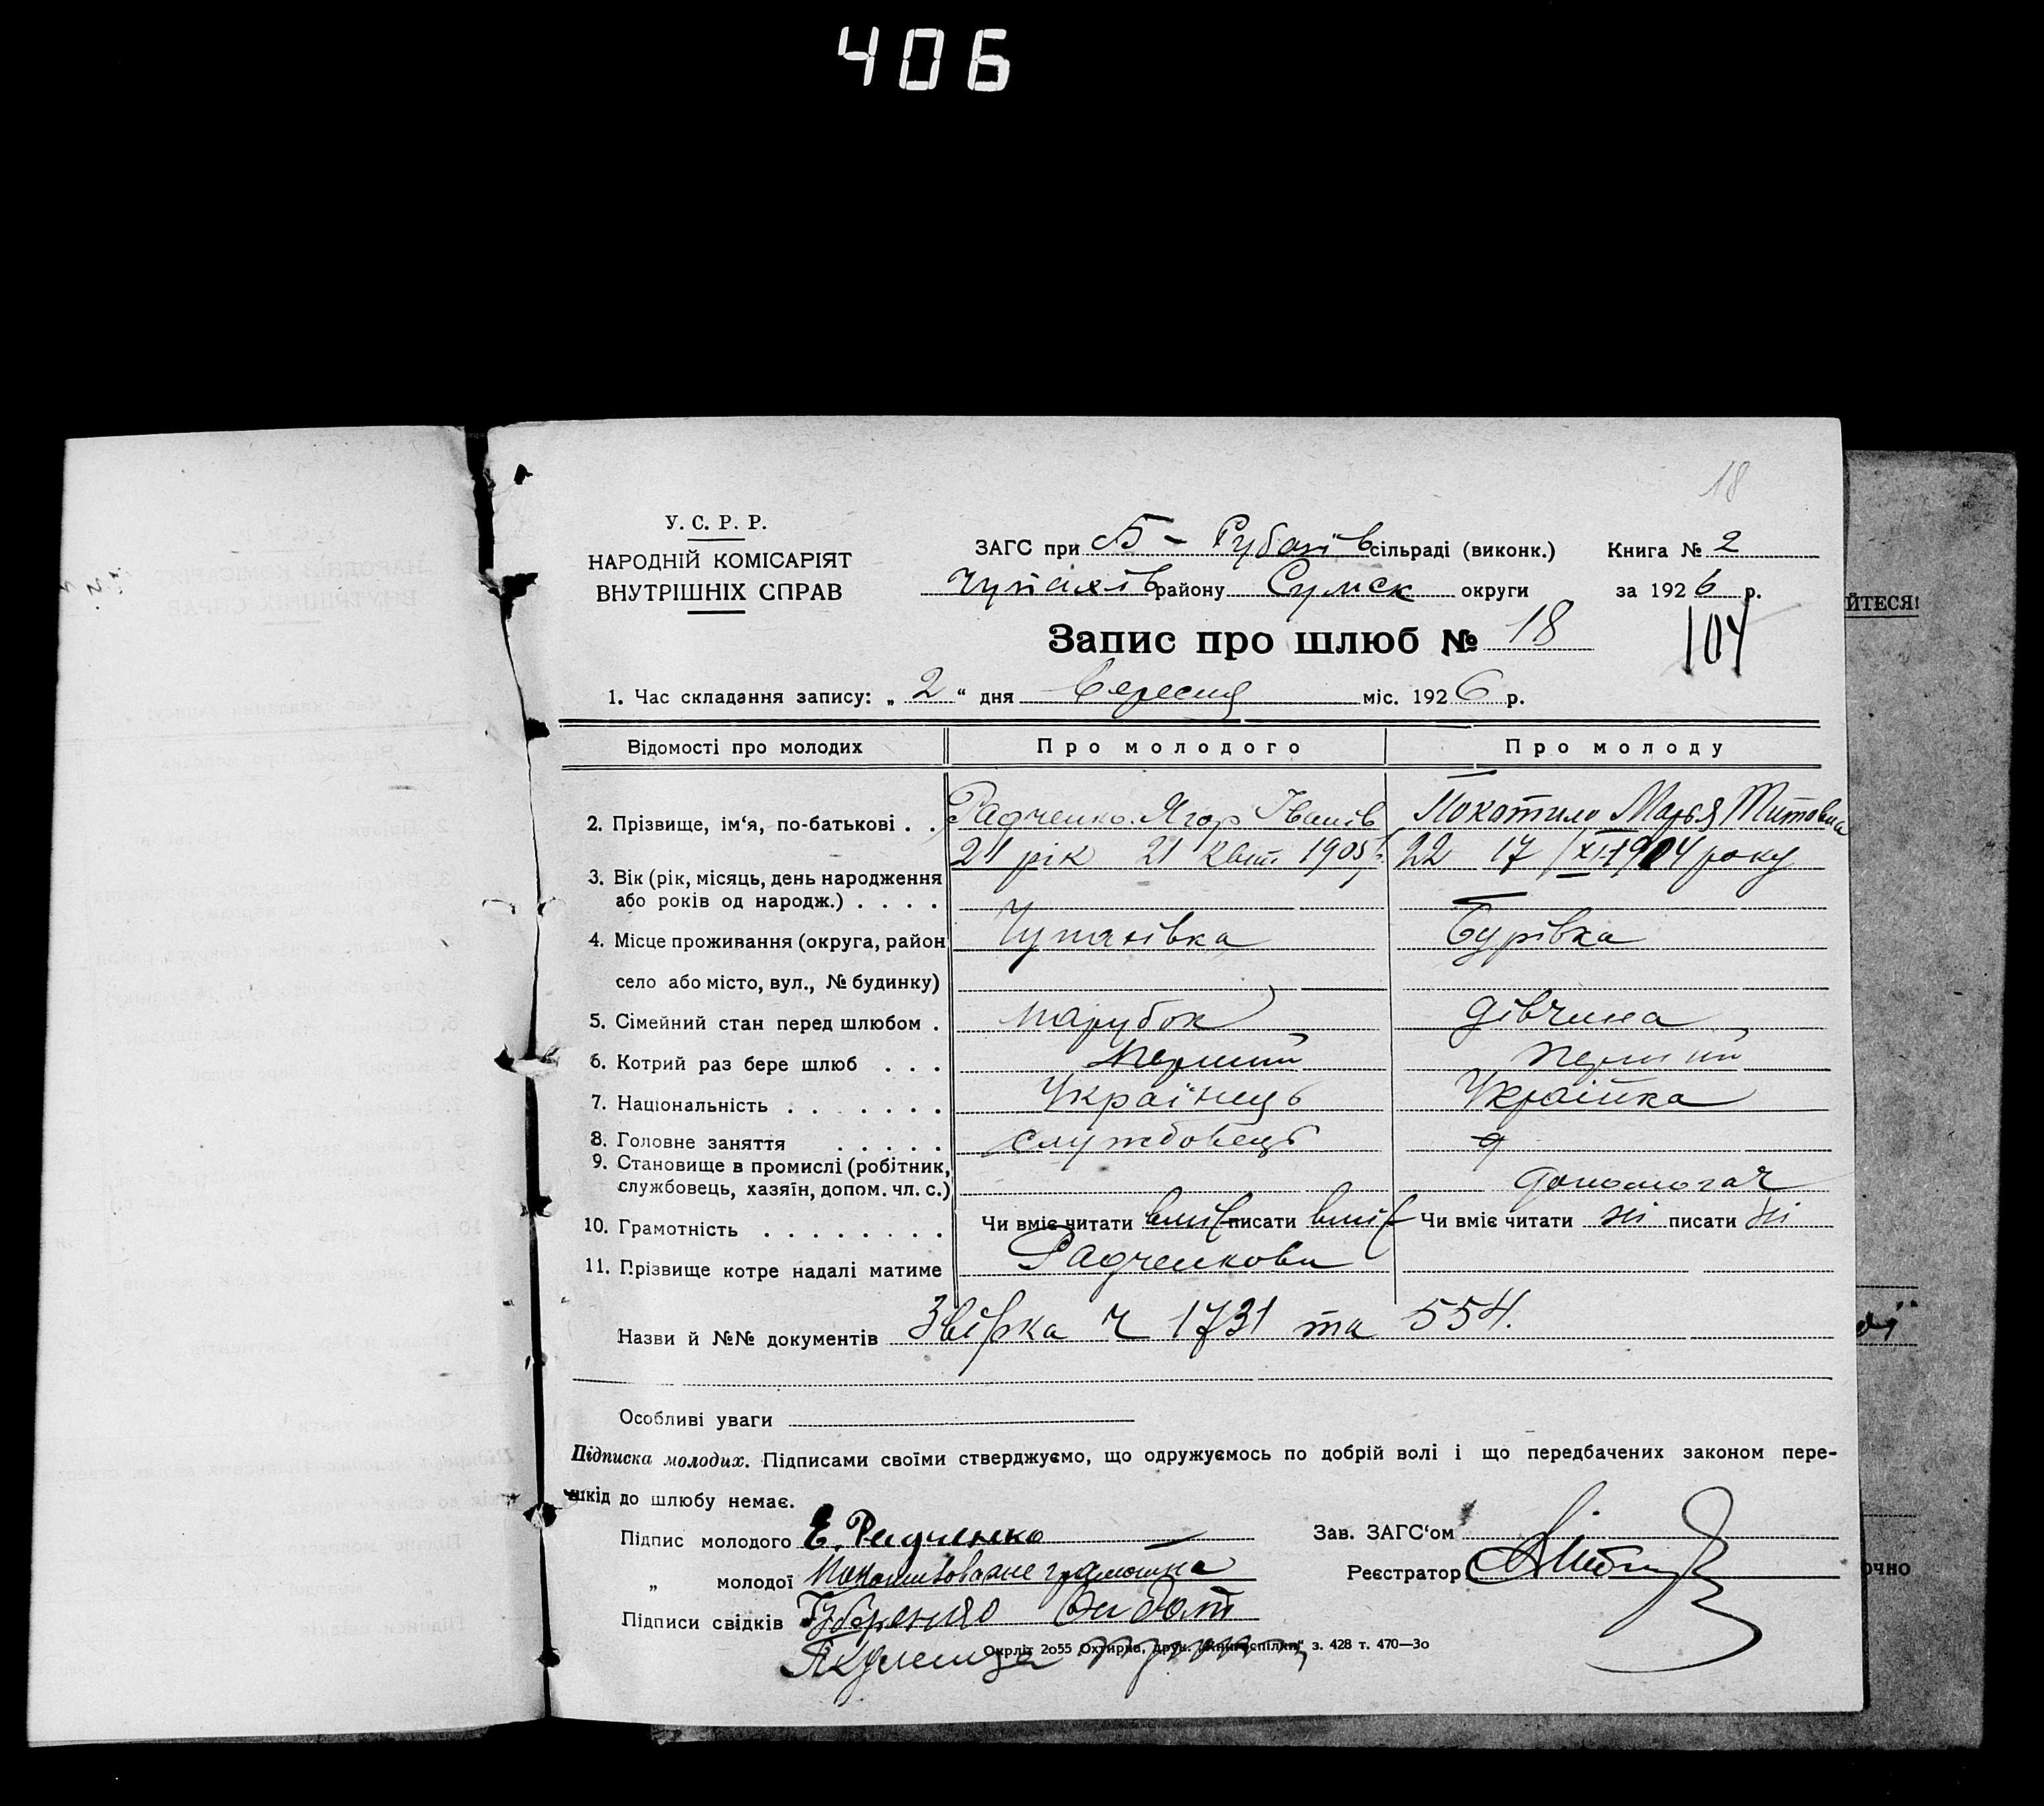 406
18
У. С. Р. Р.
НАРОДНІЙ КОМІСАРІЯТ
ВНУТРІШНІХ СПРАВ
ЗАГС при Б - Рубанів сільраді (виконк.) Книга № 2
Чупахів району Сумск округи за 1926 р.
Запис про шлюб № 18
104
1. Час складання запису: „ 2 “ дня вересня міс. 1926 р.
Відомості про молодих Про молодого Про молоду
2. Прізвище, ім‘я, по-батькові . . Радченко Ягор Іванів Покотило Марья Титовна
21 рік 21 квіт 1905 22 17/XI-1904 року
3. Вік (рік, місяць, день народження
або років од народж.) . . . .
4. Місце проживання (округа, район Чупахівка Бурівка
село або місто, вул., № будинку)
5. Сімейний стан перед шлюбом . парубок дівчина
6. Котрий раз бере шлюб . . . перший перший
7. Національність . . . . . . . Українець Українка
8. Головне заняття . . . . . службовець
9. Становище в промислі (робітник,
службовець, хазяїн, допом. чл. с.) допомогач
10. Грамотність . . . . . . . . Чи вміє читати вміє писати вміє Чи вміє читати ні писати ні
11. Прізвище котре надалі матиме Радченкови
Назви й №№ документів Звірка ч 1731 та 554.
Особливі уваги
Підписка молодих. Підписами своїми стверджуємо, що одружуємось по добрій волі і що передбачених законом пере-
шкід до шлюбу немає.
Підпис молодого Е. Радченко Зав. ЗАГС‘ом
„ молодої Реєстратор
Підписи свідків
Окрліт 2о55 Охтирка, друк. „Книгоспілки“ з. 428 т. 470—3о
ЙТЕСЯ!
очно